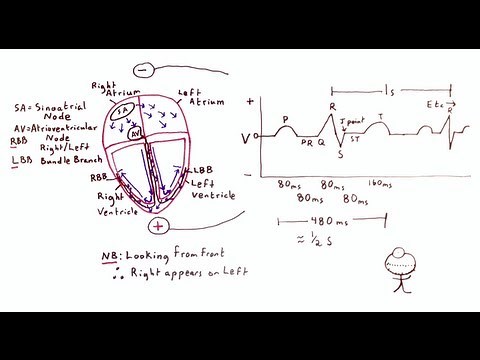 −
Right
Atrium
Left
Atrium
SA
AV
SA = Sinoatrial
Node
AV = Atrioventricular
Node
RBB Right/Left
LBB Bundle Branch
RBB
LBB
Right
Ventricle
Left
Ventricle
+
NB: Looking from front
∴ Right appears on Left
1s
Etc
+
V
−
P
PR
Q
R
S
J point
ST
T
R
80ms 80ms 160ms
80ms 80ms
480ms
≈ ½ S